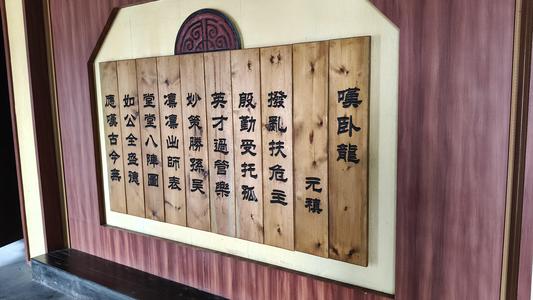 嘆卧龍
元稹
撥亂扶危主
殷勤受托孤
英才過管樂
妙策勝孫吳
凜凜出師表
堂堂八陣圖
如公全盛德
應嘆古今無